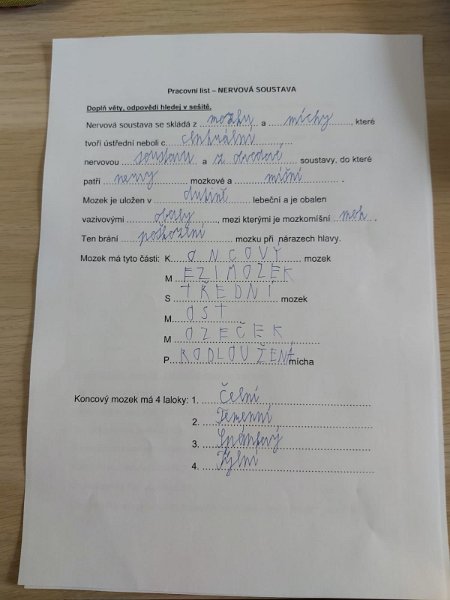 Pracovní list – NERVOVÁ SOUSTAVA
Doplň věty, odpovědi hledej v sešitě.
Nervová soustava se skládá z mozku a míchy, které
tvoří ústřední neboli centrální
nervovou soustavu a z obvodové soustavy, do které
patří nervy mozkové a míšní.
Mozek je uložen v dutině lebeční a je obalen
vazivovými obaly, mezi kterými je mozkomíšní mok.
Ten brání poškození mozku při nárazech hlavy.
Mozek má tyto části: KONCOVÝ mozek
MEZIMOZEK
STŘEDNÍ mozek
MOST
MOZEČEK
PRODLOUŽENÁ mícha
Koncový mozek má 4 laloky: 1. Čelní
2. Temenní
3. Spánkový
4. Týlní